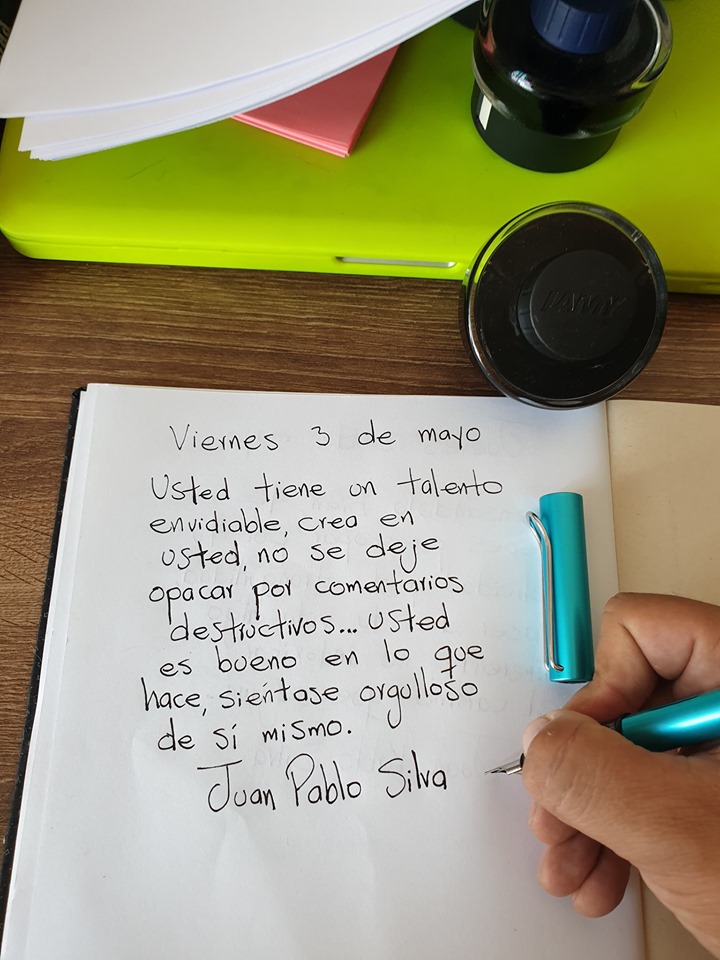 LAMY
Viernes 3 de mayo
Usted tiene un talento
envidiable, crea en
usted, no se deje
opacar por comentarios
destructivos... usted
es bueno en lo que
hace, siéntase orgulloso
de sí mismo.
Juan Pablo Silva